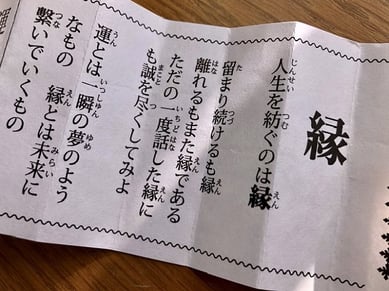 縁
人生を紡ぐのは縁
留まり続けるも縁
離れるもまた縁である
ただの一度話した縁に
も誠を尽くしてみよ
運とは一瞬の夢のよう
なもの　縁とは未来に
繋いでいくもの